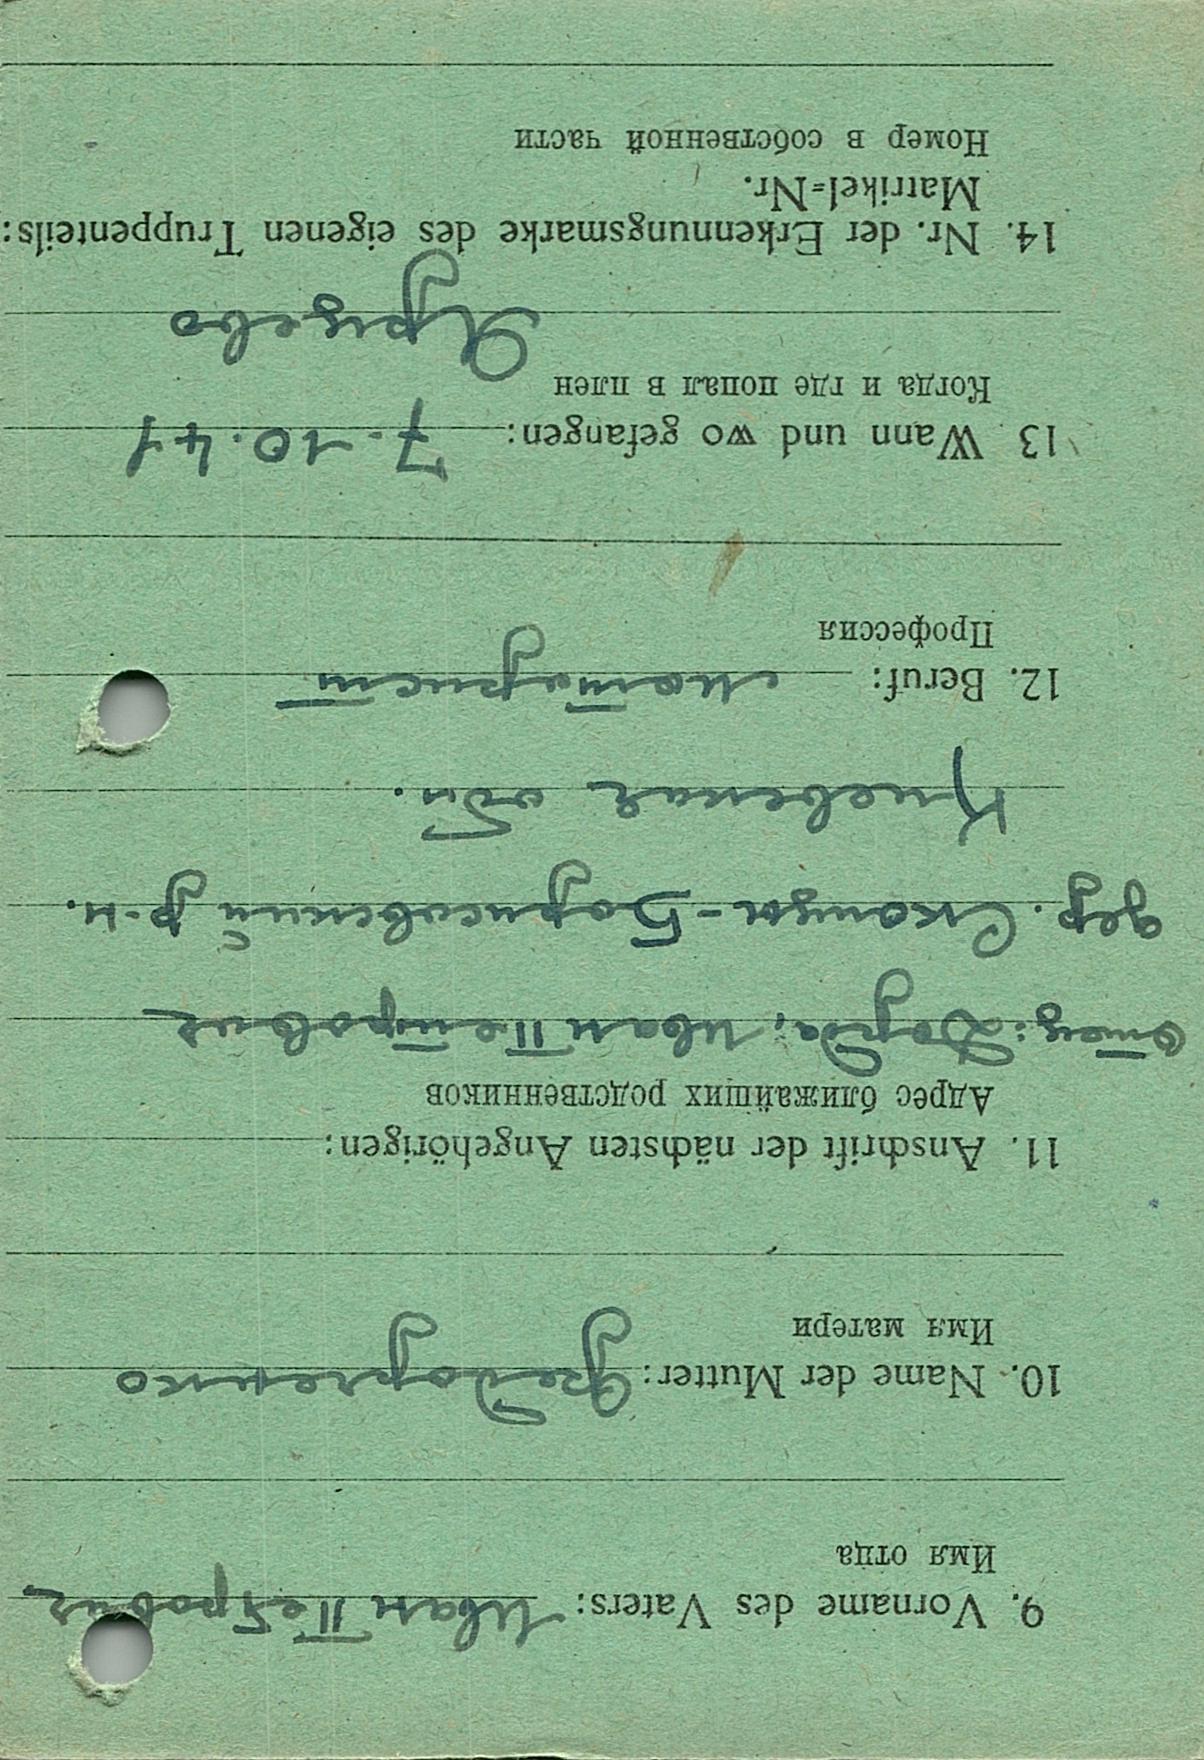 9. Vorname des Vaters: Иван Петрович
Имя отца
10. Name der Mutter: Федоренко
Имя матери
11. Anschrift der nächsten Angehörigen:
Адрес ближайших родственников
отец: Иван Петрович
дер. Борисовский р-н.
Киевская обл.
12. Beruf:
Профессия
13 Wann und wo gefangen: 7.10.41
Когда и где попал в плен
Ярцево
14. Nr. der Erkennungsmarke des eigenen Truppenteils:
Matrikel=Nr.
Номер в собственной части